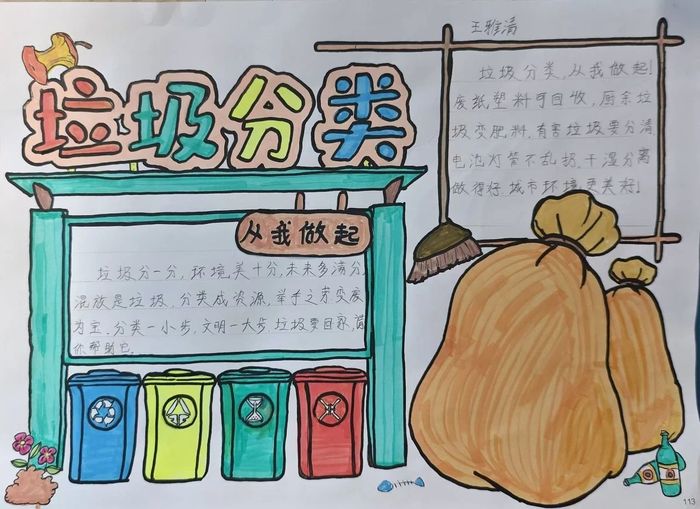 王雅清
垃圾分类
垃圾分类,从我做起!
废纸塑料可回收,厨余垃
圾变肥料,有害垃圾要分清
电池灯管不乱扔,干湿分离
做得好,城市环境更美好!
从我做起
垃圾分一分,环境美十分,未来多满分,
混放是垃圾,分类成资源,举手之劳变废
为宝,分类一小步,文明一大步,垃圾要回家,请
你帮助它。
113